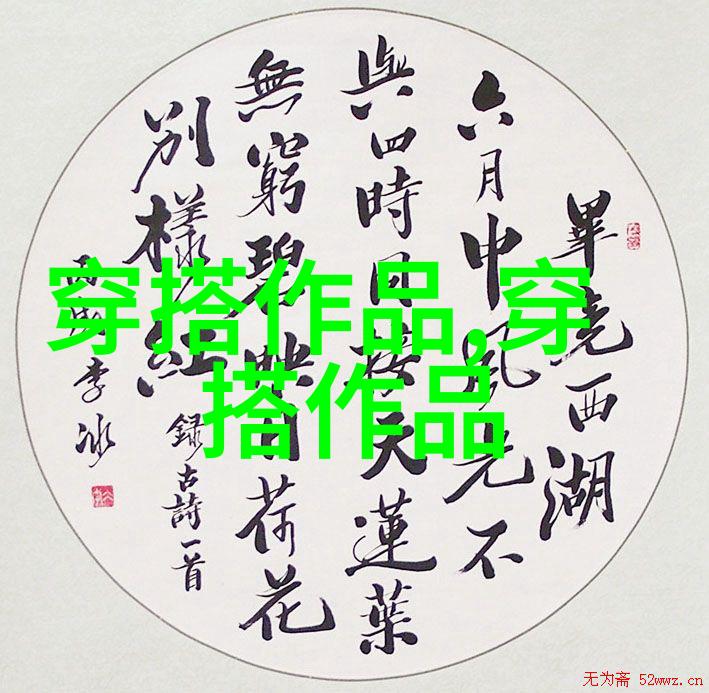 畢竟西湖
六月中風光不
與四時同接天蓮葉
無窮碧映日荷花
別樣紅
錄古詩一首
李冰
穿搭作品,穿
搭作品
无为斋 52wwz.cn